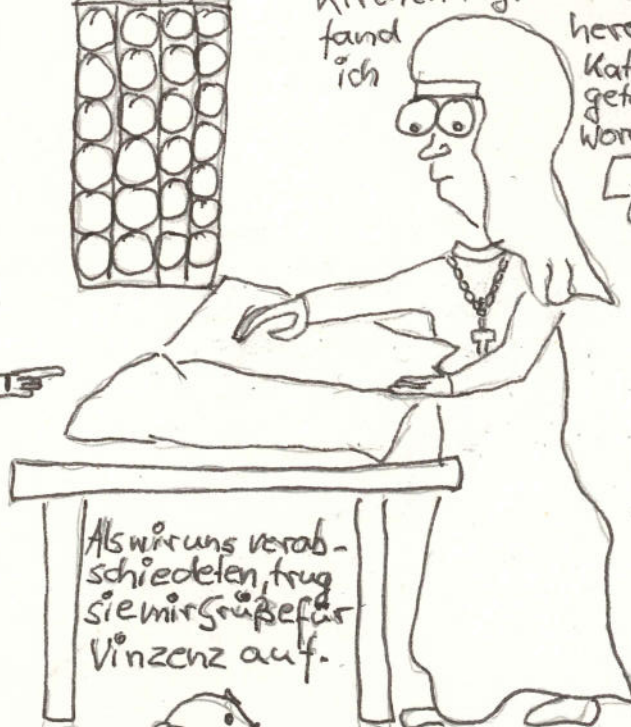 fand
ich
Als wir uns verab-
schiedeten, trug
sie mir Grüße für
Vinzenz auf.